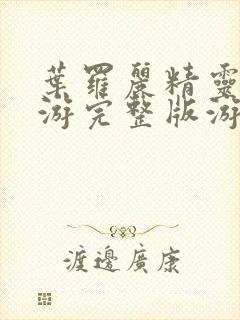 葉羅麗精靈
游完整版游
渡邊廣康